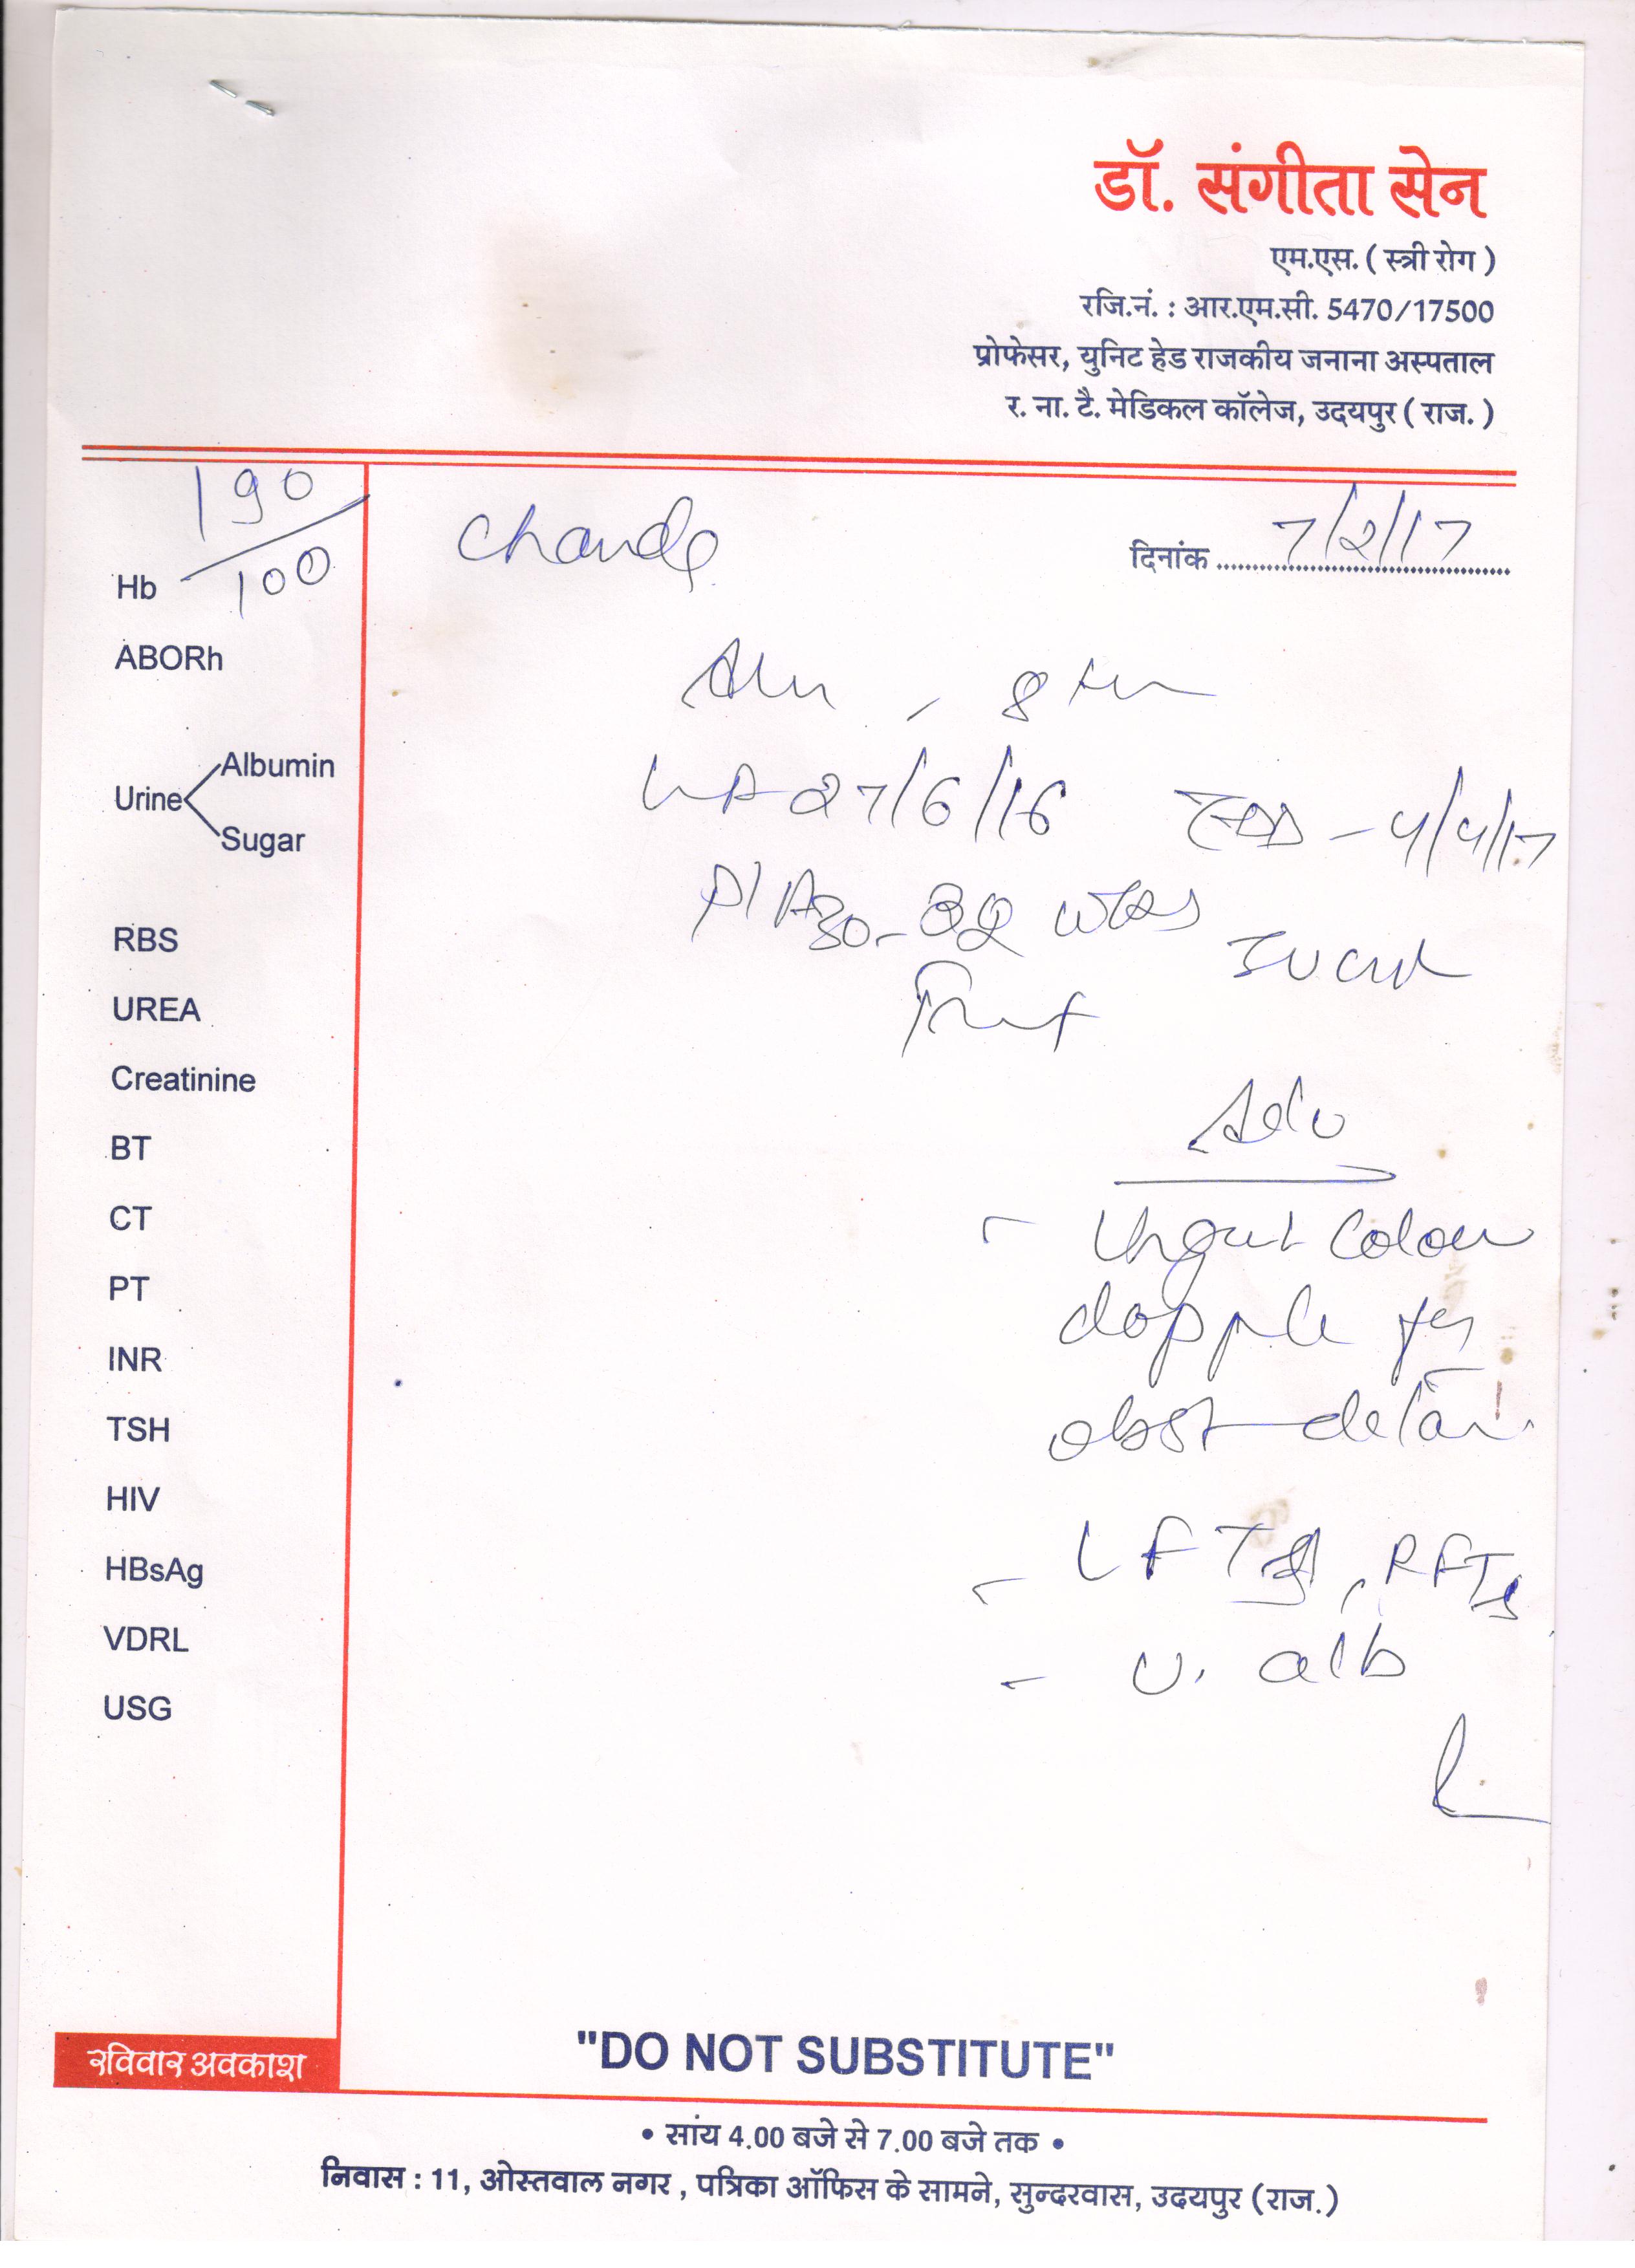 डॉ. संगीता सेन
एम.एस. ( स्त्री रोग )
रजि.नं. : आर.एम.सी. 5470/17500
प्रोफेसर, युनिट हेड राजकीय जनाना अस्पताल
र. ना. टै. मेडिकल कॉलेज, उदयपुर ( राज. )
190/100
दिनांक 7/2/17
Hb
ABORh
Urine
Albumin
Sugar
RBS
UREA
Creatinine
BT
CT
PT
INR
TSH
HIV
HBsAg
VDRL
USG
27/6/16 EDD - 4/4/17
P/A 30-32 wks
Adv
- Urgent Colour
dopple for
obst detai
- LFT, RFTs
- U. alb
रविवार अवकाश
"DO NOT SUBSTITUTE"
• सांय 4.00 बजे से 7.00 बजे तक •
निवास : 11, ओस्तवाल नगर , पत्रिका ऑफिस के सामने, सुन्दरवास, उदयपुर (राज.)